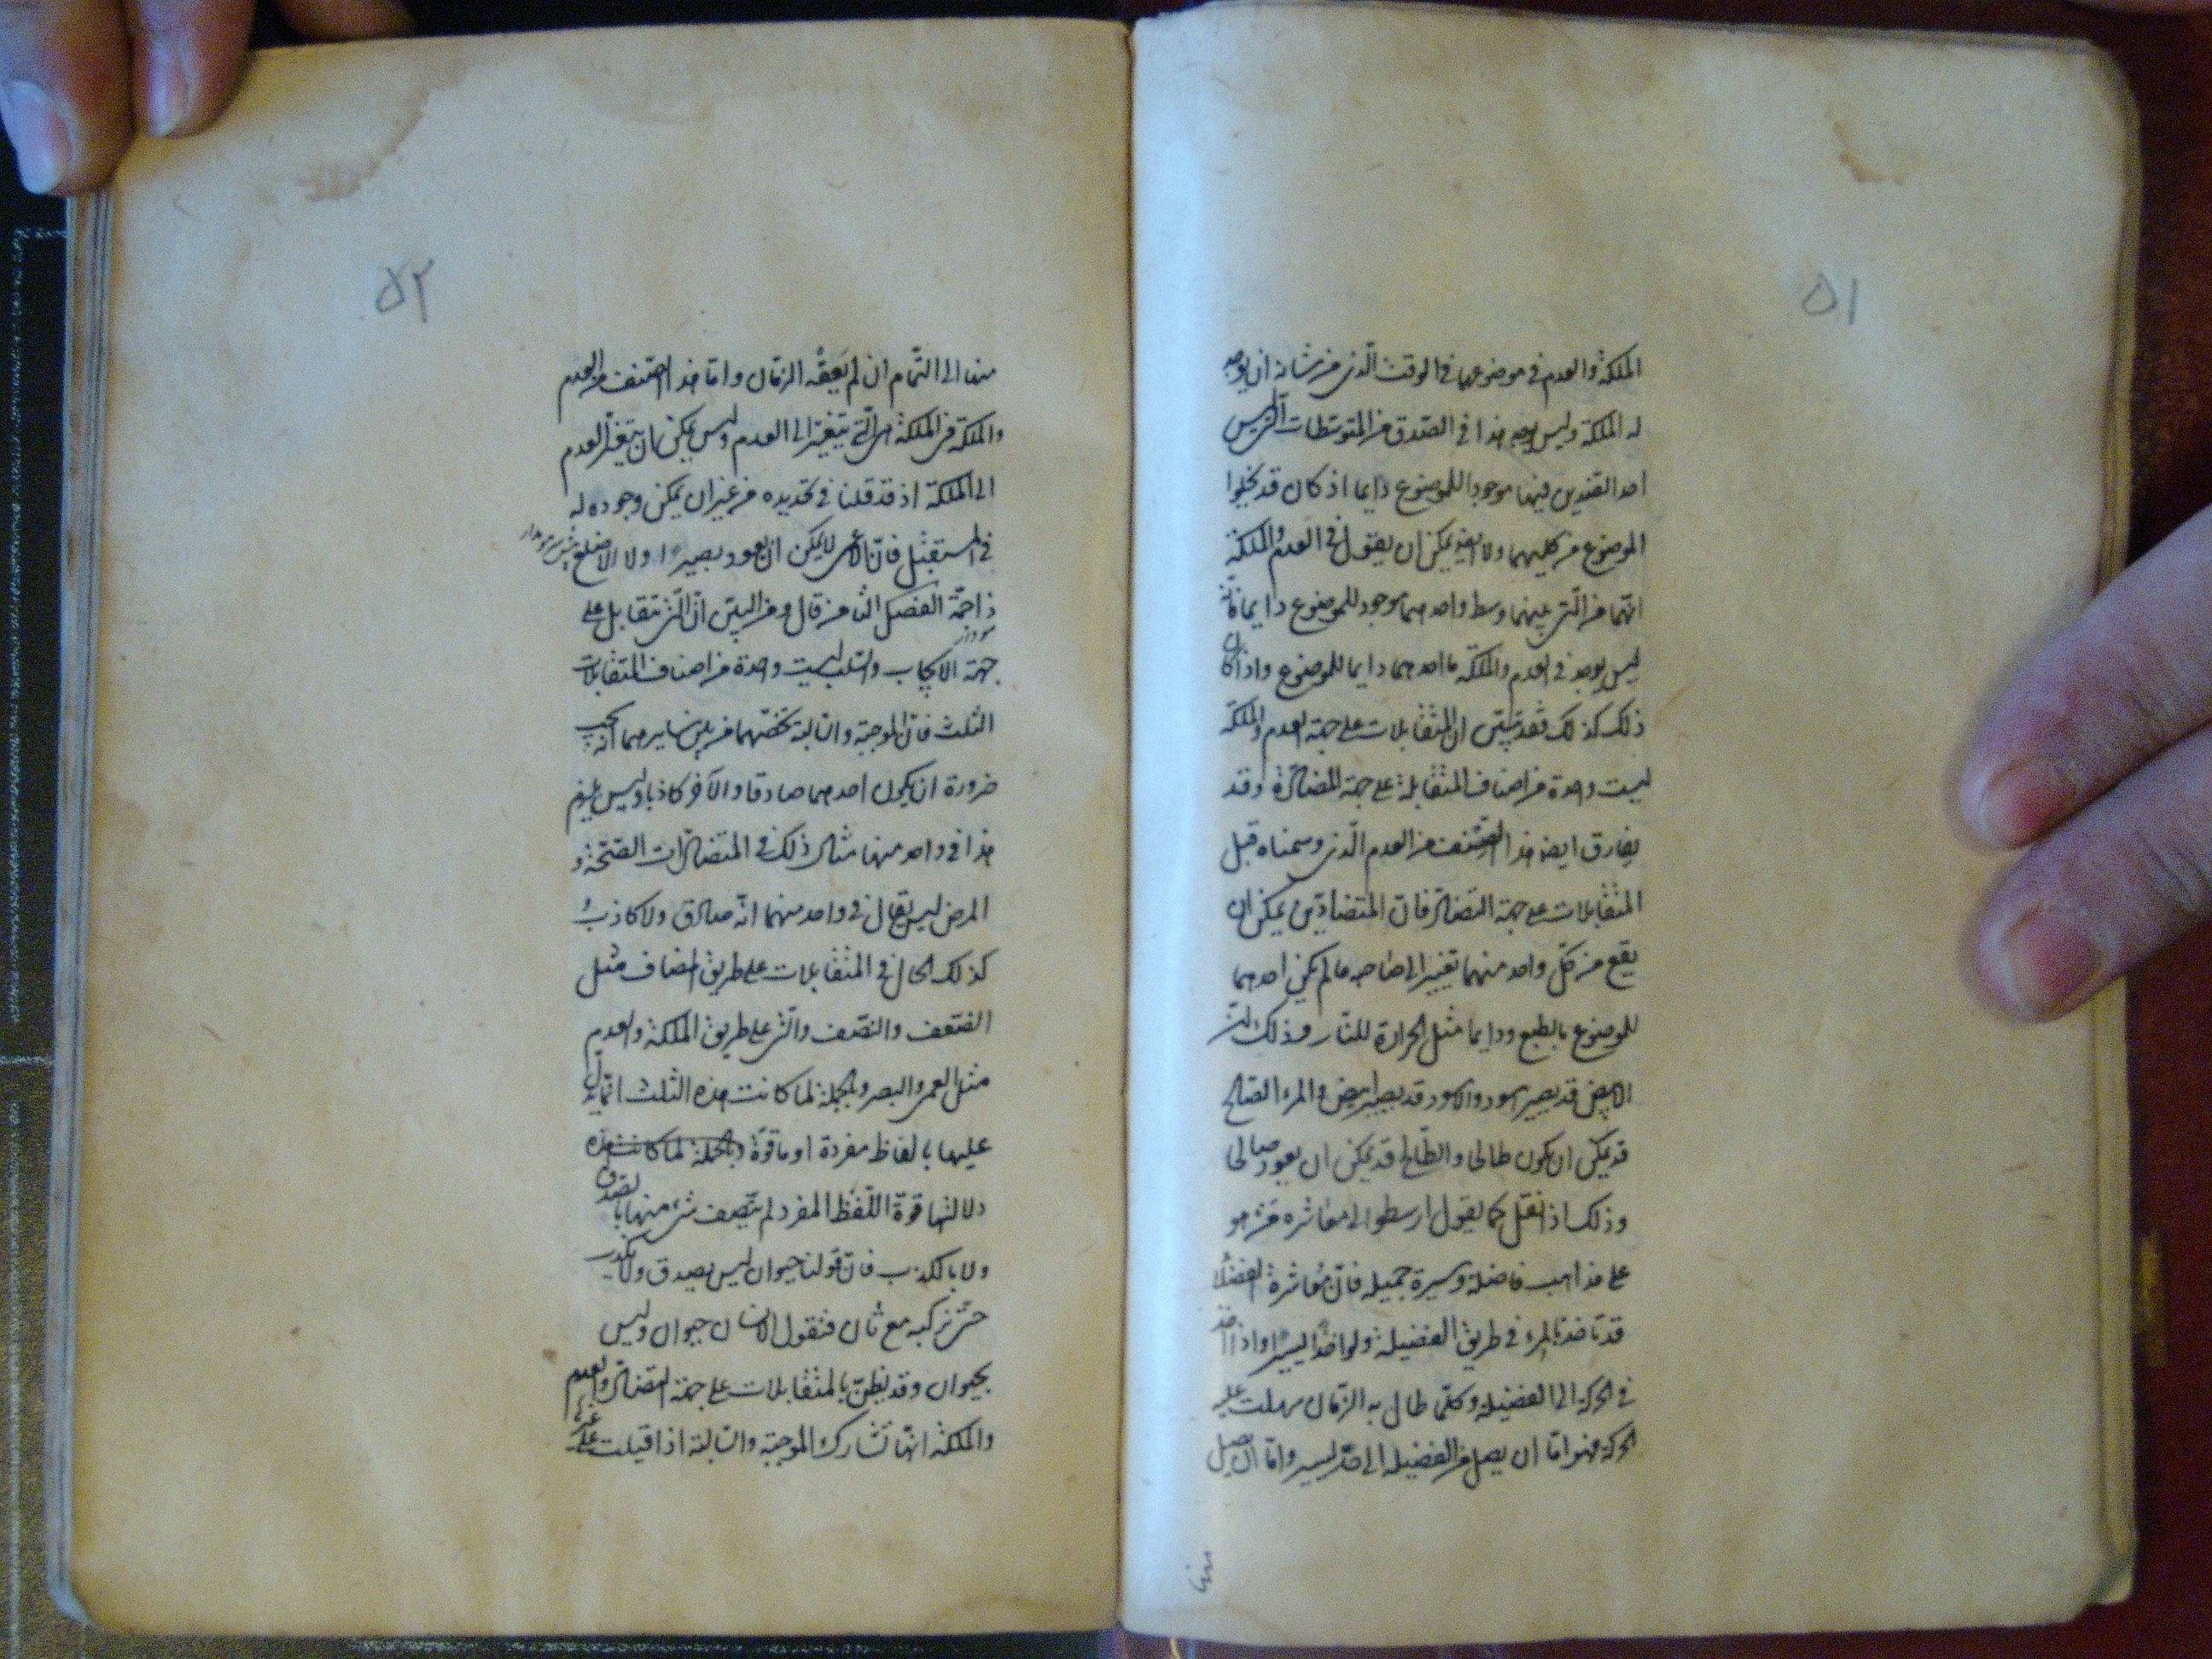 ٥١
الملكة والعدم في موضوعهما في الوقت الذي من شانه ان يوجد
له الملكة وليس يوجد هذا في الصدق من المتوسطات التي ليس
احد الضدين فيها موجودا للموضوع دايما اذ كان قد يخلوا
الموضوع من كليهما ولا ايضا يمكن ان يقول في العدم والملكة
انهما من التي بينهما وسط واحدهما موجود للموضوع دايما فانه
ليس يوجد في العدم والملكة ما احدهما دايما للموضوع واذا كان
ذلك كذلك فقد تبين ان المتقابلات على جهة العدم والملكة
ليست واحدة من اصناف المتقابلة على جهة المضادة وقد
يفارق ايضا هذا الصنف من العدم الذي رسمناه قبل
المتقابلات على جهة التضاد فان المتضادين يمكن ان
يقع من كل واحد منهما تغيير الى صاحبه ما لم يكن احدهما
للموضوع بالطبع ودايما مثل الحرارة للنار وذلك ان
الابيض قد يصير اسود والاسود قد يصير ابيض والمرء الصالح
قد يمكن ان يكون طالحا والطالح قد يمكن ان يعود صالحا
وذلك اذا نقل كما يقول ارسطو الى معاشره من هو
على مذاهب فاضلة وسيرة جميلة فان معاشرة الفضلا
قد تاخذ بالمرء في طريق الفضيلة ولو اخذا يسيرا واذا اخذ
في الحركة الى الفضيلة وكلما طال به الزمان سهلت عليه
الحركة فهو اما ان يصل من الفضيلة الى قدر يسير واما ان يصل
منها
٥٢
منها الى التمام ان لم يعقه الزمان واما هذا الصنف من العدم
والملكة فى الملكة هى التي يتغير الى العدم وليس يمكن ان يتغير العدم
الى الملكة اذ قد قلنا في تحديده من غير ان يمكن وجوده له
في المستقبل فان الاعمى لا يمكن ان يعود بصيرا ولا الاصلع
ذا جمة الفصل الثامن قال ومن البين ان التي تتقابل على
جهة الايجاب والسلب ليست واحدة من اصناف المتقابلات
الثلث فان الموجبة والسالبة تخصهما من بين سايرهما انه يجب
ضرورة ان يكون احدهما صادقا والآخر كاذبا وليس يلزم
هذا في واحد منها مثال ذلك في المتضادات الصحة و
المرض ليس يقال في واحد منهما انه صادق ولا كاذب و
كذلك الحال في المتقابلات على طريق المضاف مثل
الضعف والنصف والتي على طريق الملكة والعدم
مثل العمى والبصر وبالجملة لما كانت هذه الثلث انما يدل
عليها بالفاظ مفردة او ما قوة وبالجملة لما كانت هذه
دلالتها قوة اللفظ المفرد لم يتصف شئ منها بالصدق
ولا بالكذب فان قولنا حيوان ليس يصدق ولا يكذب
حتى نركبه مع ثان فنقول الانسان حيوان وليس
بحيوان وقد يظن بالمتقابلات على جهة التضاد والعدم
والملكة انها تشارك الموجبة والسالبة اذا قيلت على